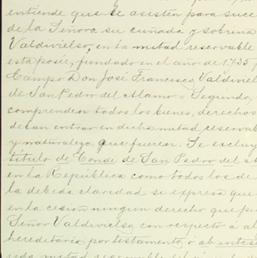 entiende que se asisten para suce
de la Señora su cuñada y sobrina
Valdivielso, en la mitad reservable
está poseé, fundado en el año de 1735 y
Campo Don José Francisco Valdiviel
de San Pedro del Alamo. Segundo,
comprenden todos los bienes, derechos
deban entrar en dicha mitad reservab
y naturaleza que fueren. Se excluy
título de Conde de San Pedro del A
en la República como todos los de
la debida claridad se expresa que
en la cesión ningun derecho que pu
Señor Valdivielso con respecto a al
hereditaria por testamento, o ab intest
mitad reservable